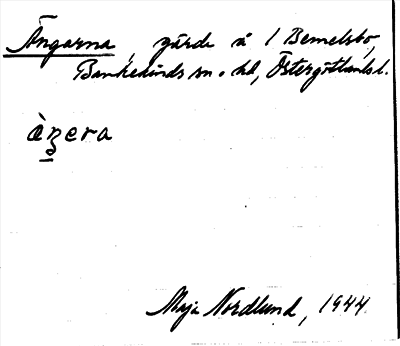 Ängarna, gärde å 1 Bemelsbo,
Bankekinds sn o hd, Östergötlands l.
àŋera
Maja Nordlund, 1944.